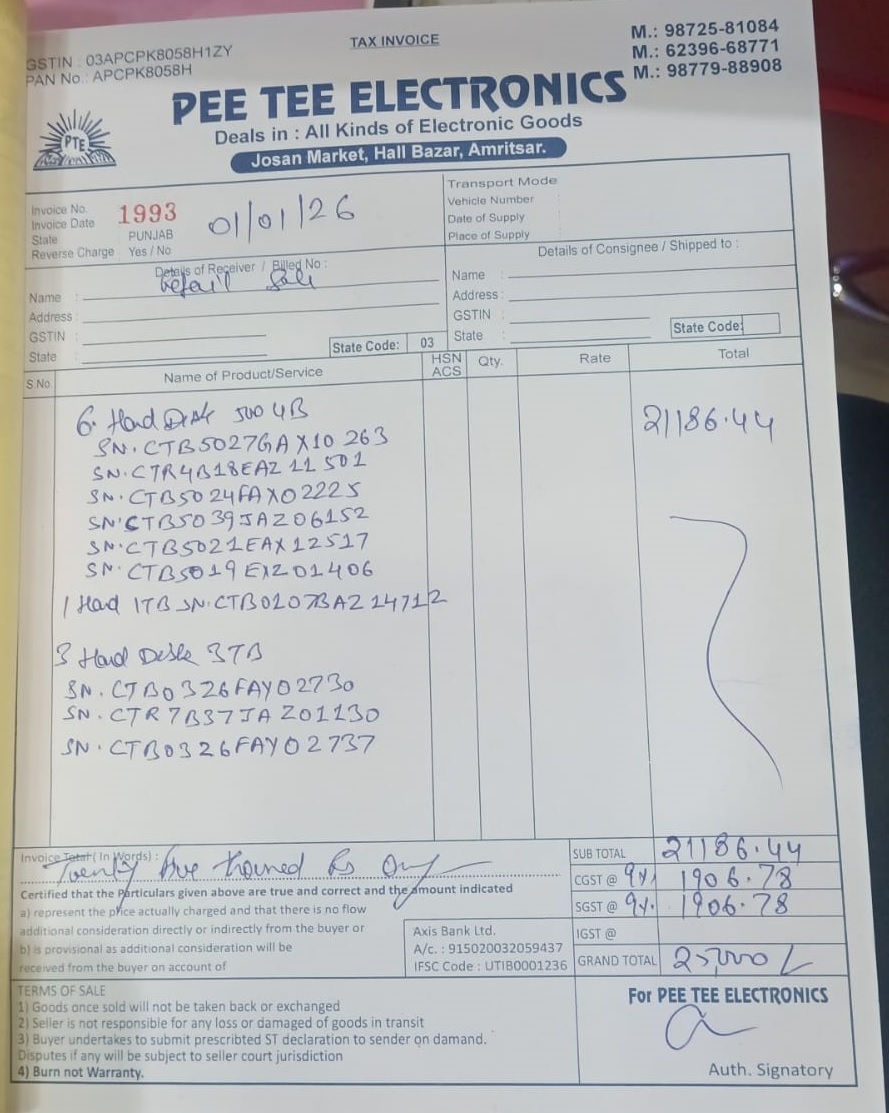 TAX INVOICE
GSTIN : 03APCPK8058H1ZY
PAN No.: APCPK8058H
M.: 98725-81084
M.: 62396-68771
M.: 98779-88908
PEE TEE ELECTRONICS
PTE
Deals in : All Kinds of Electronic Goods
Josan Market, Hall Bazar, Amritsar.
Invoice No. 1993
Invoice Date 01/01/26
State PUNJAB
Reverse Charge Yes / No
Transport Mode :
Vehicle Number :
Date of Supply :
Place of Supply :
Details of Receiver / Billed No :
Retail Sale
Name :
Address :
GSTIN :
State :
State Code: 03
Details of Consignee / Shipped to :
Name :
Address :
GSTIN :
State :
State Code:
S.No. Name of Product/Service HSN ACS Qty. Rate Total
6 Hard Disk 500 GB 21186.44
SN. CTB5027GAX10263
SN. CTR4B18EAZ11501
SN. CTB5024FAX02225
SN. CTB5039JAZ06152
SN. CTB5021EAX12517
SN. CTB5019EXZ01406
1 Hard 1TB SN. CTB0107BAZ14712
3 Hard Deske 3TB
SN. CTB0326FAY02730
SN. CTR7B37JAZ01130
SN. CTB0326FAY02737
Invoice Total ( In Words) :
Twenty five thousand Rs only
Certified that the Particulars given above are true and correct and the amount indicated
a) represent the price actually charged and that there is no flow
additional consideration directly or indirectly from the buyer or
b) is provisional as additional consideration will be
received from the buyer on account of
Axis Bank Ltd.
A/c. : 915020032059437
IFSC Code : UTIB0001236
SUB TOTAL 21186.44
CGST @ 9% 1906.78
SGST @ 9% 1906.78
IGST @
GRAND TOTAL 25,000/-
TERMS OF SALE
1) Goods once sold will not be taken back or exchanged
2) Seller is not responsible for any loss or damaged of goods in transit
3) Buyer undertakes to submit prescribted ST declaration to sender on damand.
Disputes if any will be subject to seller court jurisdiction
4) Burn not Warranty.
For PEE TEE ELECTRONICS
Auth. Signatory